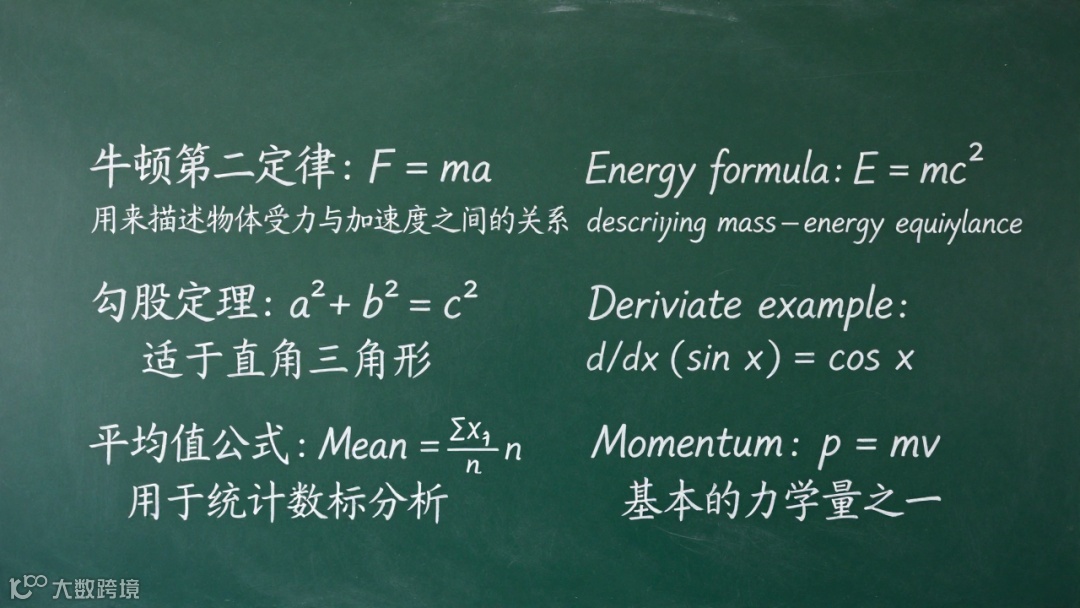 牛顿第二定律: F = ma
用来描述物体受力与加速度之间的关系
勾股定理: a² + b² = c²
适于直角三角形
平均值公式: Mean = Σx₁/n n
用于统计数标分析
Energy formula: E = mc²
descriying mass–energy equiylance
Deriviate example:
d/dx (sin x) = cos x
Momentum: p = mv
基本的力学量之一
大数跨境